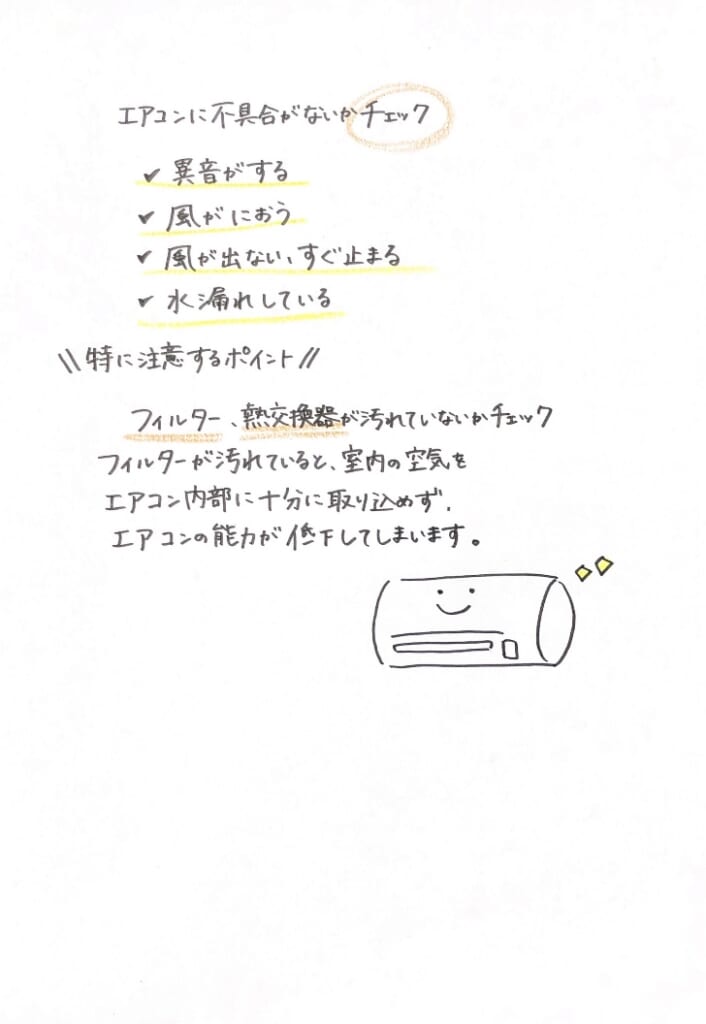 エアコンに不具合がないかチェック
✓ 異音がする
✓ 風がにおう
✓ 風が出ない、すぐ止まる
✓ 水漏れしている
\\特に注意するポイント//
フィルター、熱交換器が汚れていないかチェック
フィルターが汚れていると、室内の空気を
エアコン内部に十分に取り込めず、
エアコンの能力が低下してしまいます。